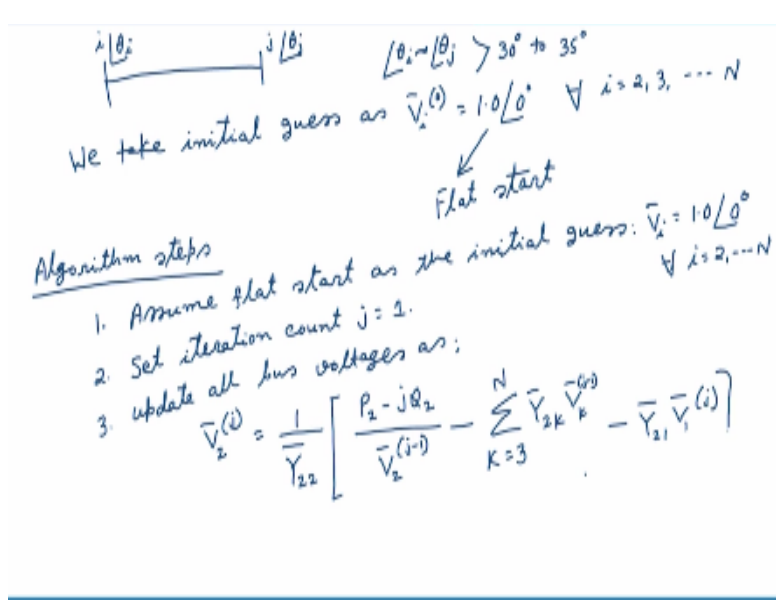 i∠θi j∠θj ∠θi ~ ∠θj > 30° to 35°
We take initial guess as V̄i^(0) = 1.0∠0° ∀ i = 2, 3, ... N
Flat start
Algorithm steps
1. Assume flat start as the initial guess: V̄i = 1.0∠0°
∀ i = 2, ... N
2. Set iteration count j = 1.
3. update all bus voltages as:
V̄2^(j) = 1/Ȳ22 [ (P2 - jQ2)/V̄2^(j-1) - Σ_{K=3}^{N} Ȳ2K V̄K^(j-1) - Ȳ21 V̄1^(j) ]